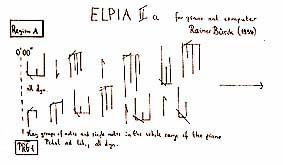 ELPIA II a for piano and computer
Region A
Rainer Bürck (1998)
0'00"
all dyn.
Play groups of notes and single notes in the whole range of the piano
PRG 1 Pedal ad lib., all dyn.